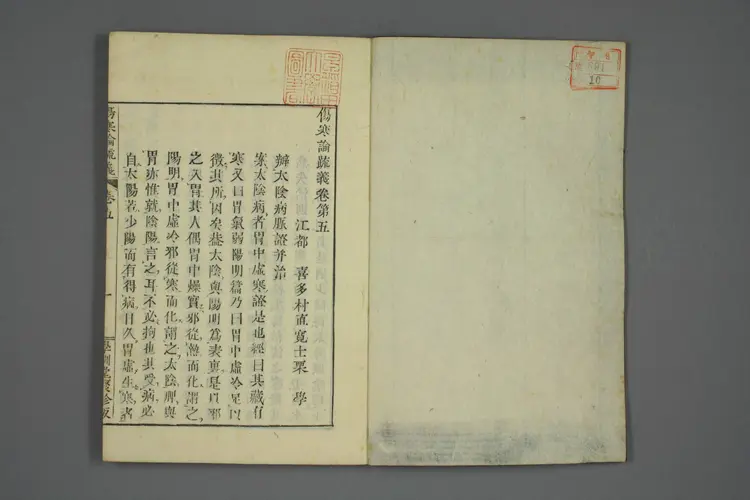 傷寒論疏義卷第五
江都 喜多村直寬士栗 學
辨太陰病脈證并治
案太陰病者胃中虛寒證是也經曰其藏有
寒又曰胃氣弱陽明篇乃曰胃中虛冷足以
徵其所因矣蓋太陰與陽明爲表裏是以邪
之入胃其人偶胃中燥實邪從熱而化謂之
陽明胃中虛冷邪從寒而化謂之太陰脾與
胃亦惟就陰陽言之耳不必拘也其受病必
自太陽若少陽而有得病日久胃虛生寒者
傷寒論疏義
卷五
一
聚珍版